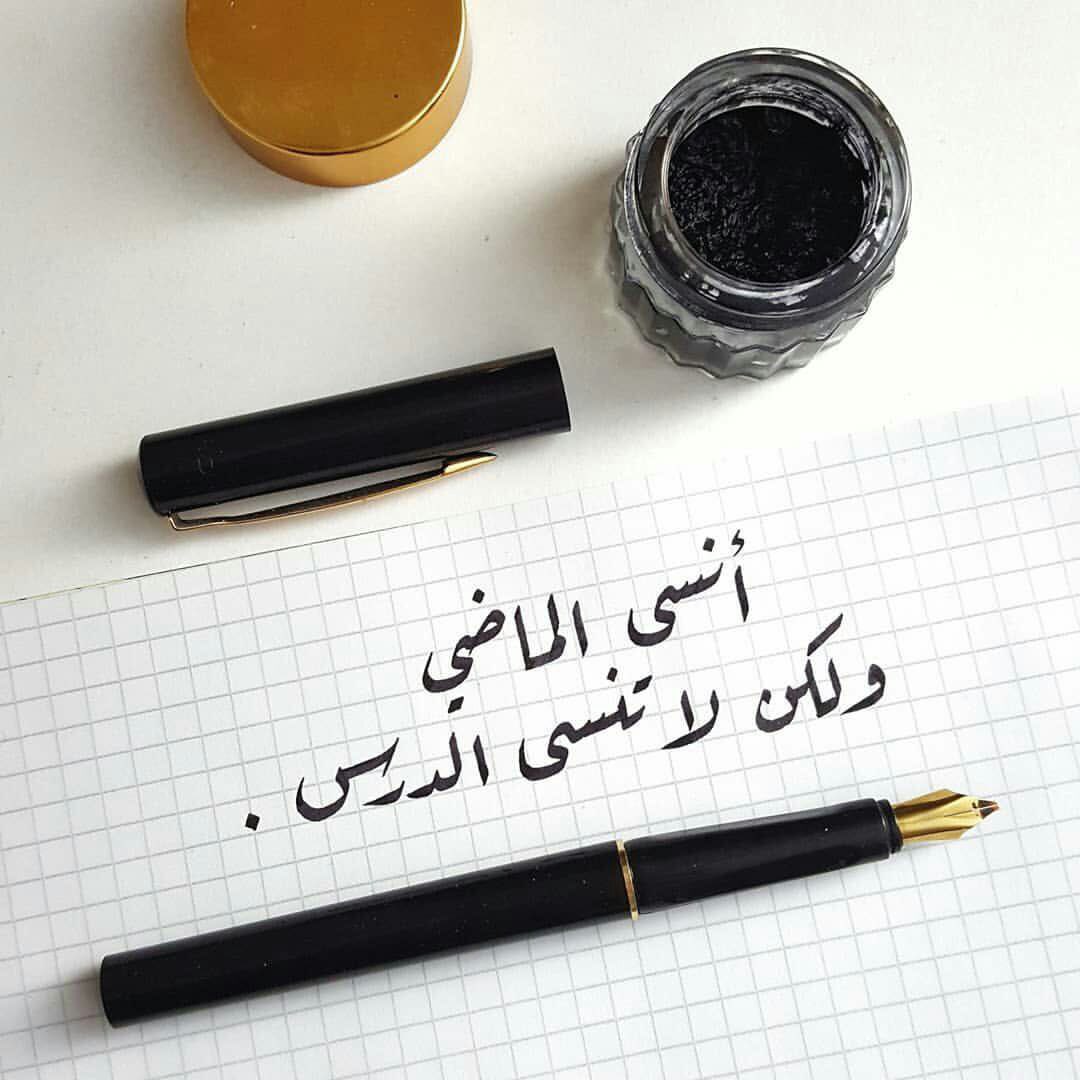 أنسى الماضي
ولكن لا تنسى الدرس .